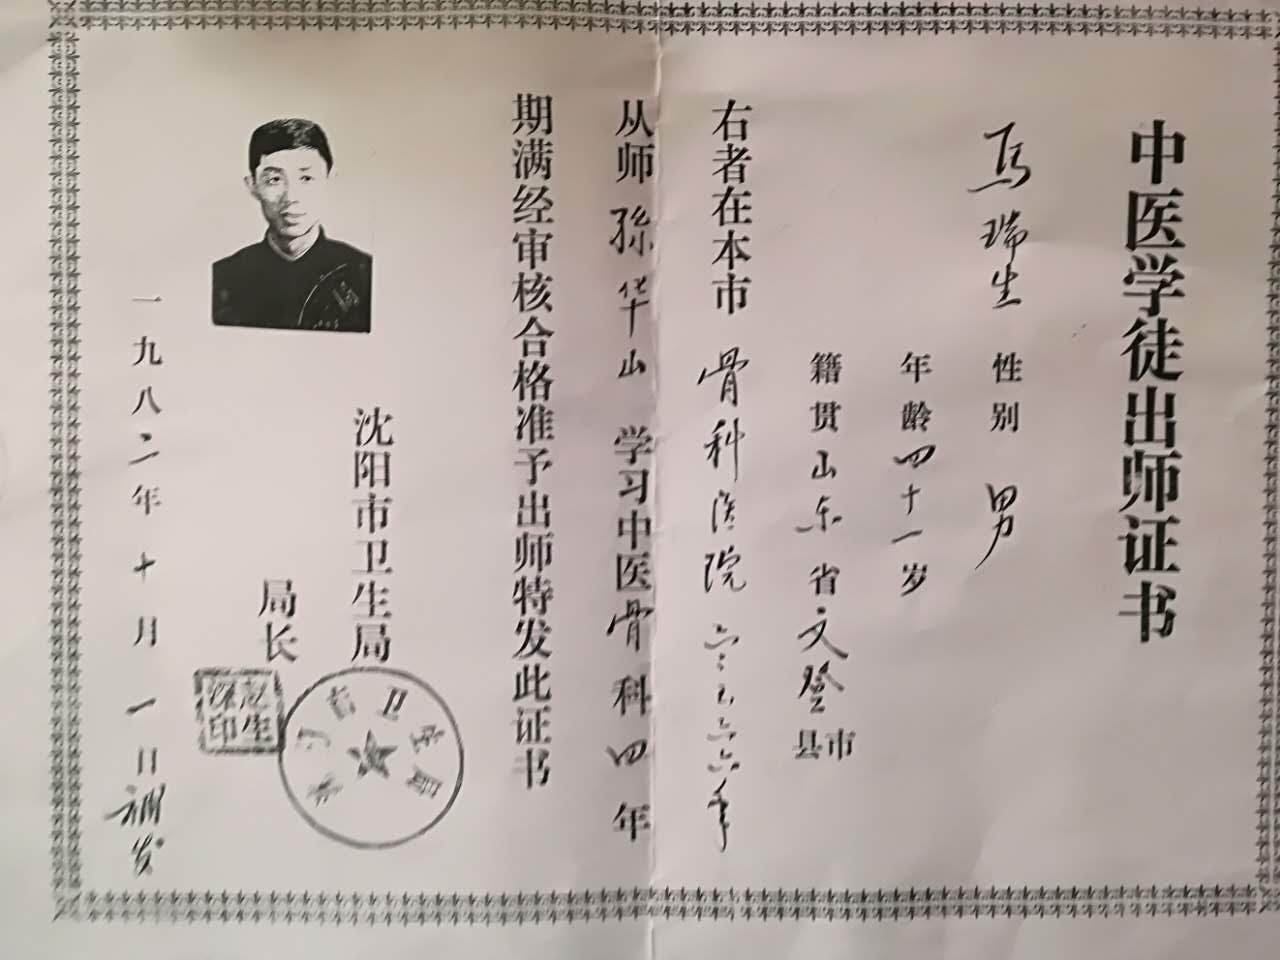 中医学徒出师证书
马瑞生 性别 男
年龄四十一岁
籍贯山东省文登县市
右者在本市骨科医院六二至六六年
从师孙华山 学习中医骨科四年
期满经审核合格准予出师特发此证书
沈阳市卫生局
局长
一九八二年十月一日补发